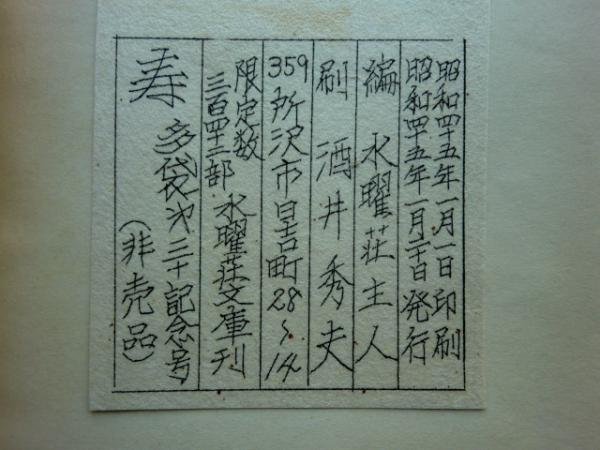 昭和四十五年一月一日印刷
昭和四十五年一月二十日発行
編 水曜荘主人
刷 酒井秀夫
359 所沢市星吉町28〜14
限定数
三百四十二部 水曜荘文庫刊
寿 多袋第三十記念号
(非売品)